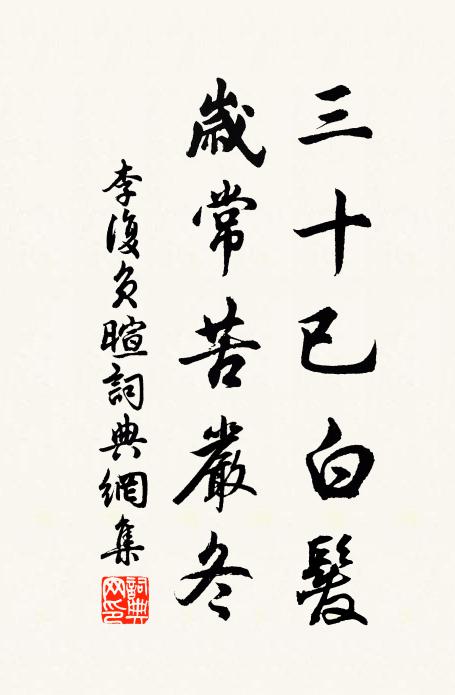 三十已白髮
歲常苦嚴冬
李復負暄詞典網集
詞典網印